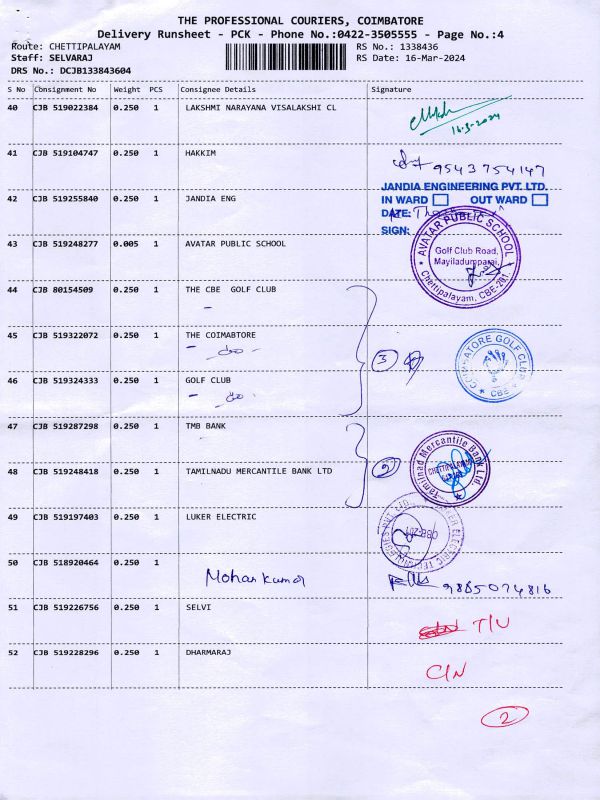 THE PROFESSIONAL COURIERS, COIMBATORE
Delivery Runsheet - PCK - Phone No.:0422-3505555 - Page No.:4
Route: CHETTIPALAYAM RS No.: 1338436
Staff: SELVARAJ RS Date: 16-Mar-2024
DRS No.: DCJB133843604
S No Consignment No Weight PCS Consignee Details Signature
40 CJB 519022384 0.250 1 LAKSHMI NARAYANA VISALAKSHI CL
16.3-2024
41 CJB 519104747 0.250 1 HAKKIM
9543754147
JANDIA ENGINEERING PVT. LTD.
42 CJB 519255840 0.250 1 JANDIA ENG IN WARD OUT WARD
DATE:
SIGN:
43 CJB 519248277 0.005 1 AVATAR PUBLIC SCHOOL
AVATAR PUBLIC SCHOOL
Golf Club Road,
Mayiladumparai,
Chettipalayam, CBE-201.
44 CJB 80154509 0.250 1 THE CBE GOLF CLUB
45 CJB 519322072 0.250 1 THE COIMABTORE
3
COIMBATORE GOLF CLUB
CBE
46 CJB 519324333 0.250 1 GOLF CLUB
47 CJB 519287298 0.250 1 TMB BANK
2
Tamilnad Mercantile Bank Ltd.
48 CJB 519248418 0.250 1 TAMILNADU MERCANTILE BANK LTD
49 CJB 519197403 0.250 1 LUKER ELECTRIC
LUKER ELECTRIC TECHNOLOGIES PVT LTD.
50 CJB 518920464 0.250 1
Mohan kumar 9885074816
51 CJB 519226756 0.250 1 SELVI
T/U
52 CJB 519228296 0.250 1 DHARMARAJ
C/N
2